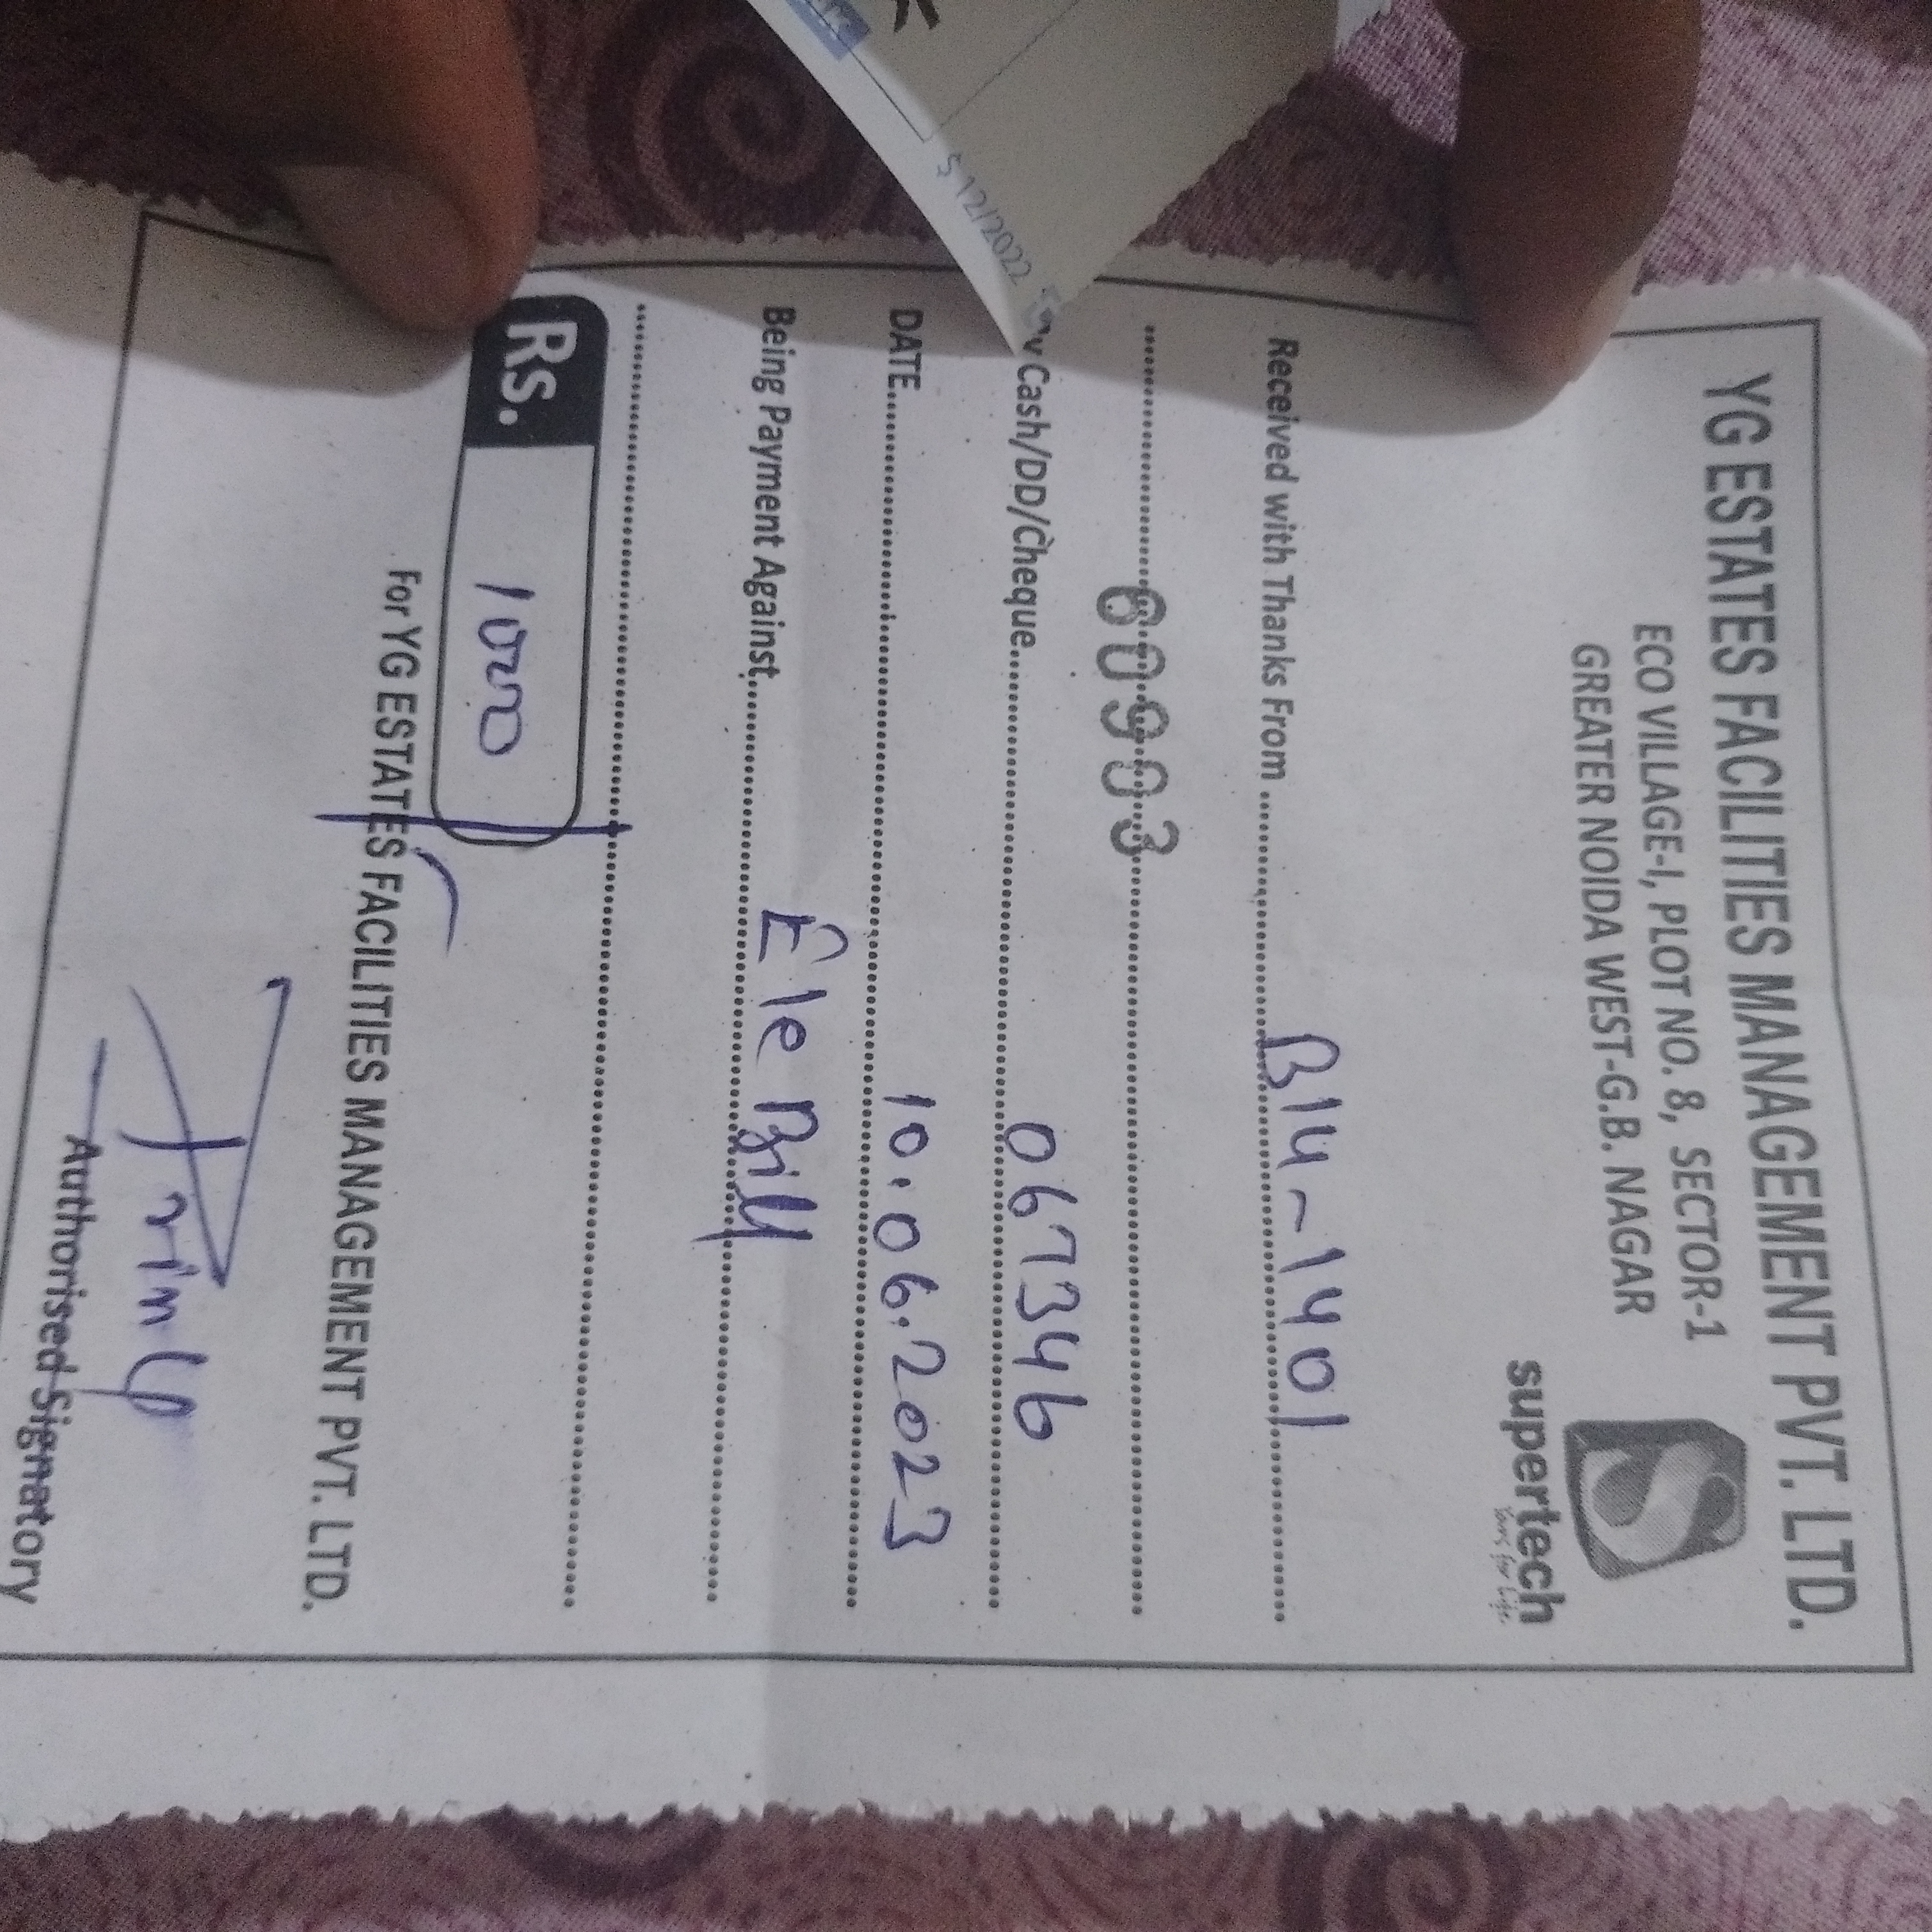 YG ESTATES FACILITIES MANAGEMENT PVT. LTD.
ECO VILLAGE-I, PLOT NO. 8, SECTOR-1
GREATER NOIDA WEST-G.B. NAGAR
supertech
Yours for Life
Received with Thanks From B14-1401
60903
Cash/DD/Cheque 067346
DATE 10.06.2023
Being Payment Against Ele Bill
Rs. 1000
For YG ESTATES FACILITIES MANAGEMENT PVT. LTD.
Authorised Signatory
$ 12/2022